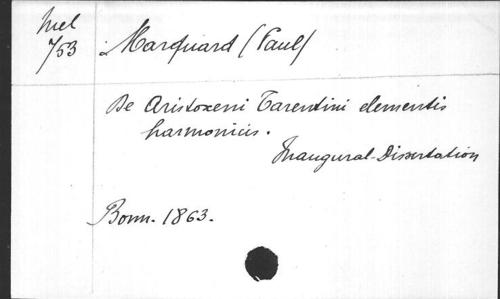 Mel
753
Marquard (Paul)
De Aristoxeni Tarentini elementis
harmonicis.
Inaugural-Dissertation
Bonn. 1863.